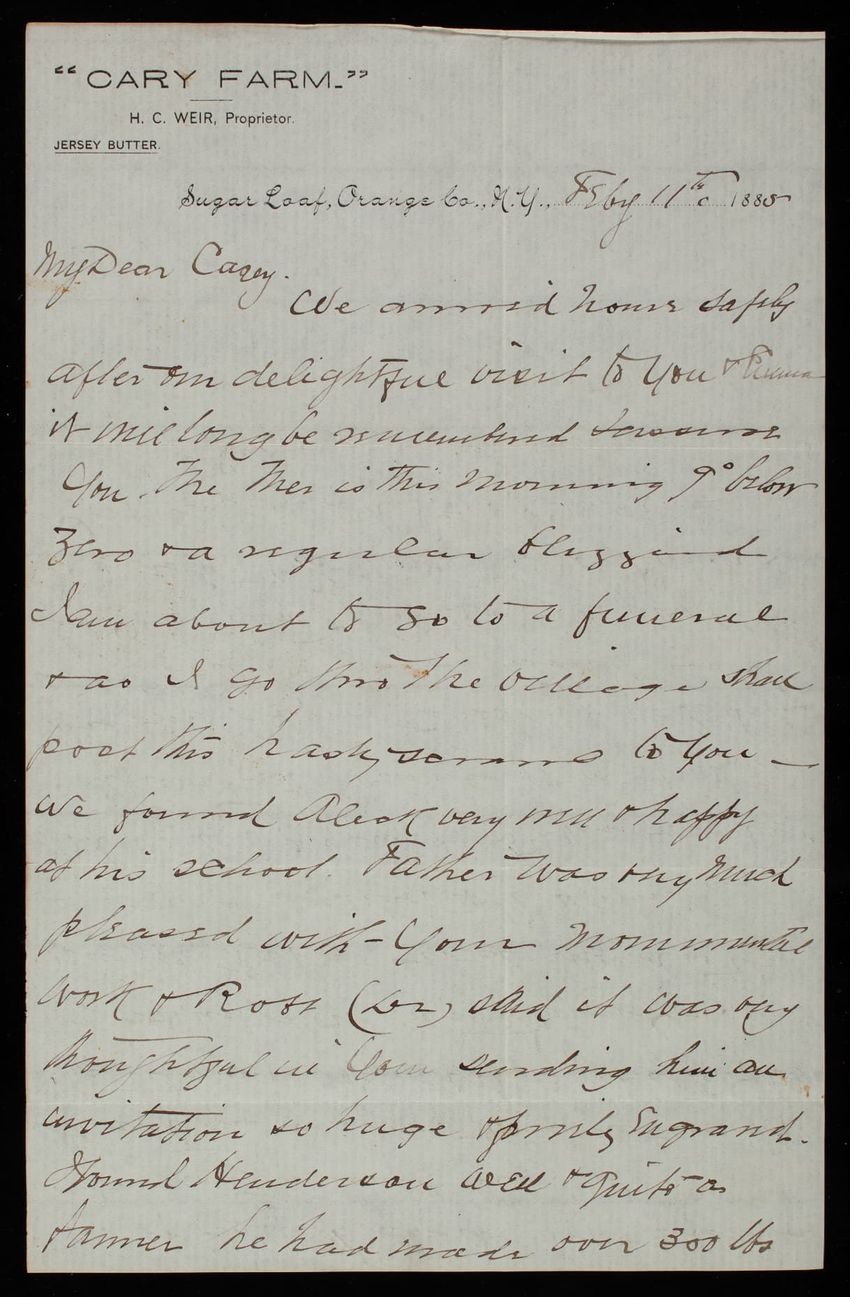 "CARY FARM."
H. C. WEIR, Proprietor.
JERSEY BUTTER.
Sugar Loaf, Orange Co., N.Y., Feby 11th 1885
My Dear Casey.
We arrived home safely
after our delightful visit to you & Emma
it will long be remembered I assure
you. The Ther is this morning 9° below
zero & a regular blizzard
I am about to go to a funeral
& as I go thro the village shall
post this hasty scrawl to you —
we found Aleck very well & happy
at his school. Father was very much
pleased with your monumental
work & Ross (Dr) said it was very
thoughtful in your sending him an
invitation so huge & finely engraved.
Found Henderson well & quite a
farmer he had made over 300 lbs